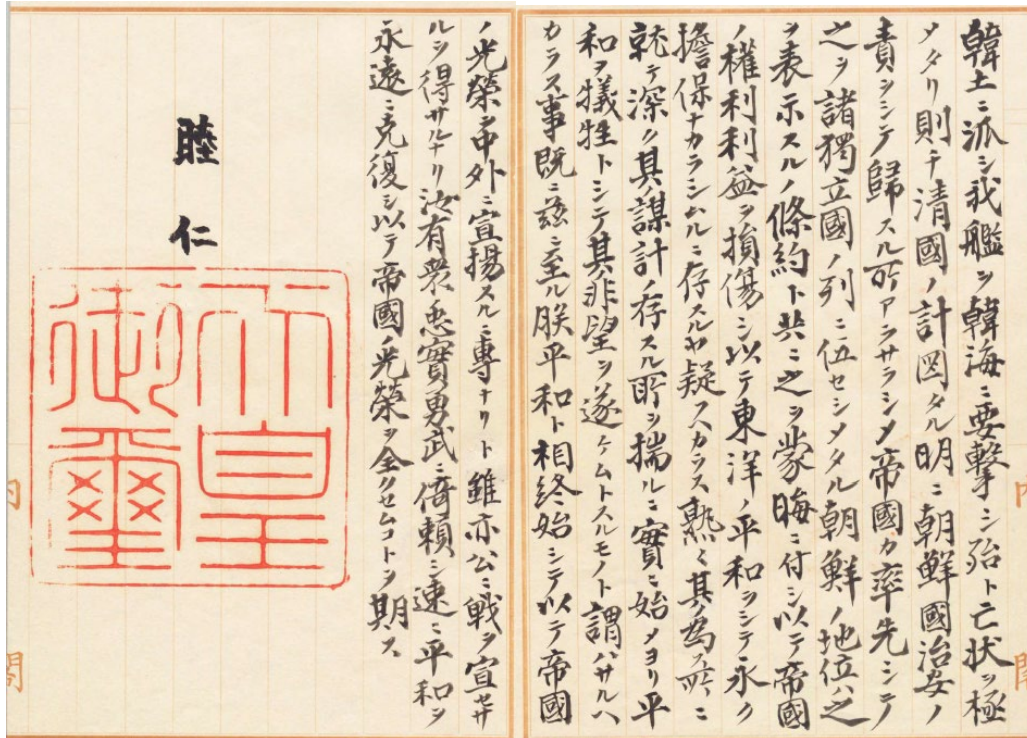 韓土ニ派シ我艦ヲ韓海ニ要撃シ殆ト亡状ヲ極
メタリ則チ清國ノ計圖タル明ニ朝鮮國治安ノ
責ヲシテ歸スル所アラサラシメ帝國カ率先シテ
之ヲ諸獨立國ノ列ニ伍セシメタル朝鮮ノ地位ハ之
ヲ表示スルノ條約ト共ニ之ヲ蒙晦ニ付シ以テ帝國
ノ權利利益ヲ損傷シ以テ東洋ノ平和ヲシテ永ク
擔保ナカラシムルニ存スルヤ疑フヘカラス熟〻其ノ為ス所ニ
就テ深ク其ノ謀計ノ存スル所ヲ揣ルニ實ニ始メヨリ平
和ヲ犠牲トシテ其ノ非望ヲ遂ケムトスルモノト謂ハサルヘ
カラス事既ニ茲ニ至ル朕平和ト相終始シテ以テ帝國
ノ光榮ヲ中外ニ宣揚スルニ專ナリト雖亦公ニ戰ヲ宣セサ
ルヲ得サルナリ汝有衆ノ忠實勇武ニ倚頼シ速ニ平和ヲ
永遠ニ克復シ以テ帝國ノ光榮ヲ全クセムコトヲ期ス
睦仁
天皇
御璽
内閣